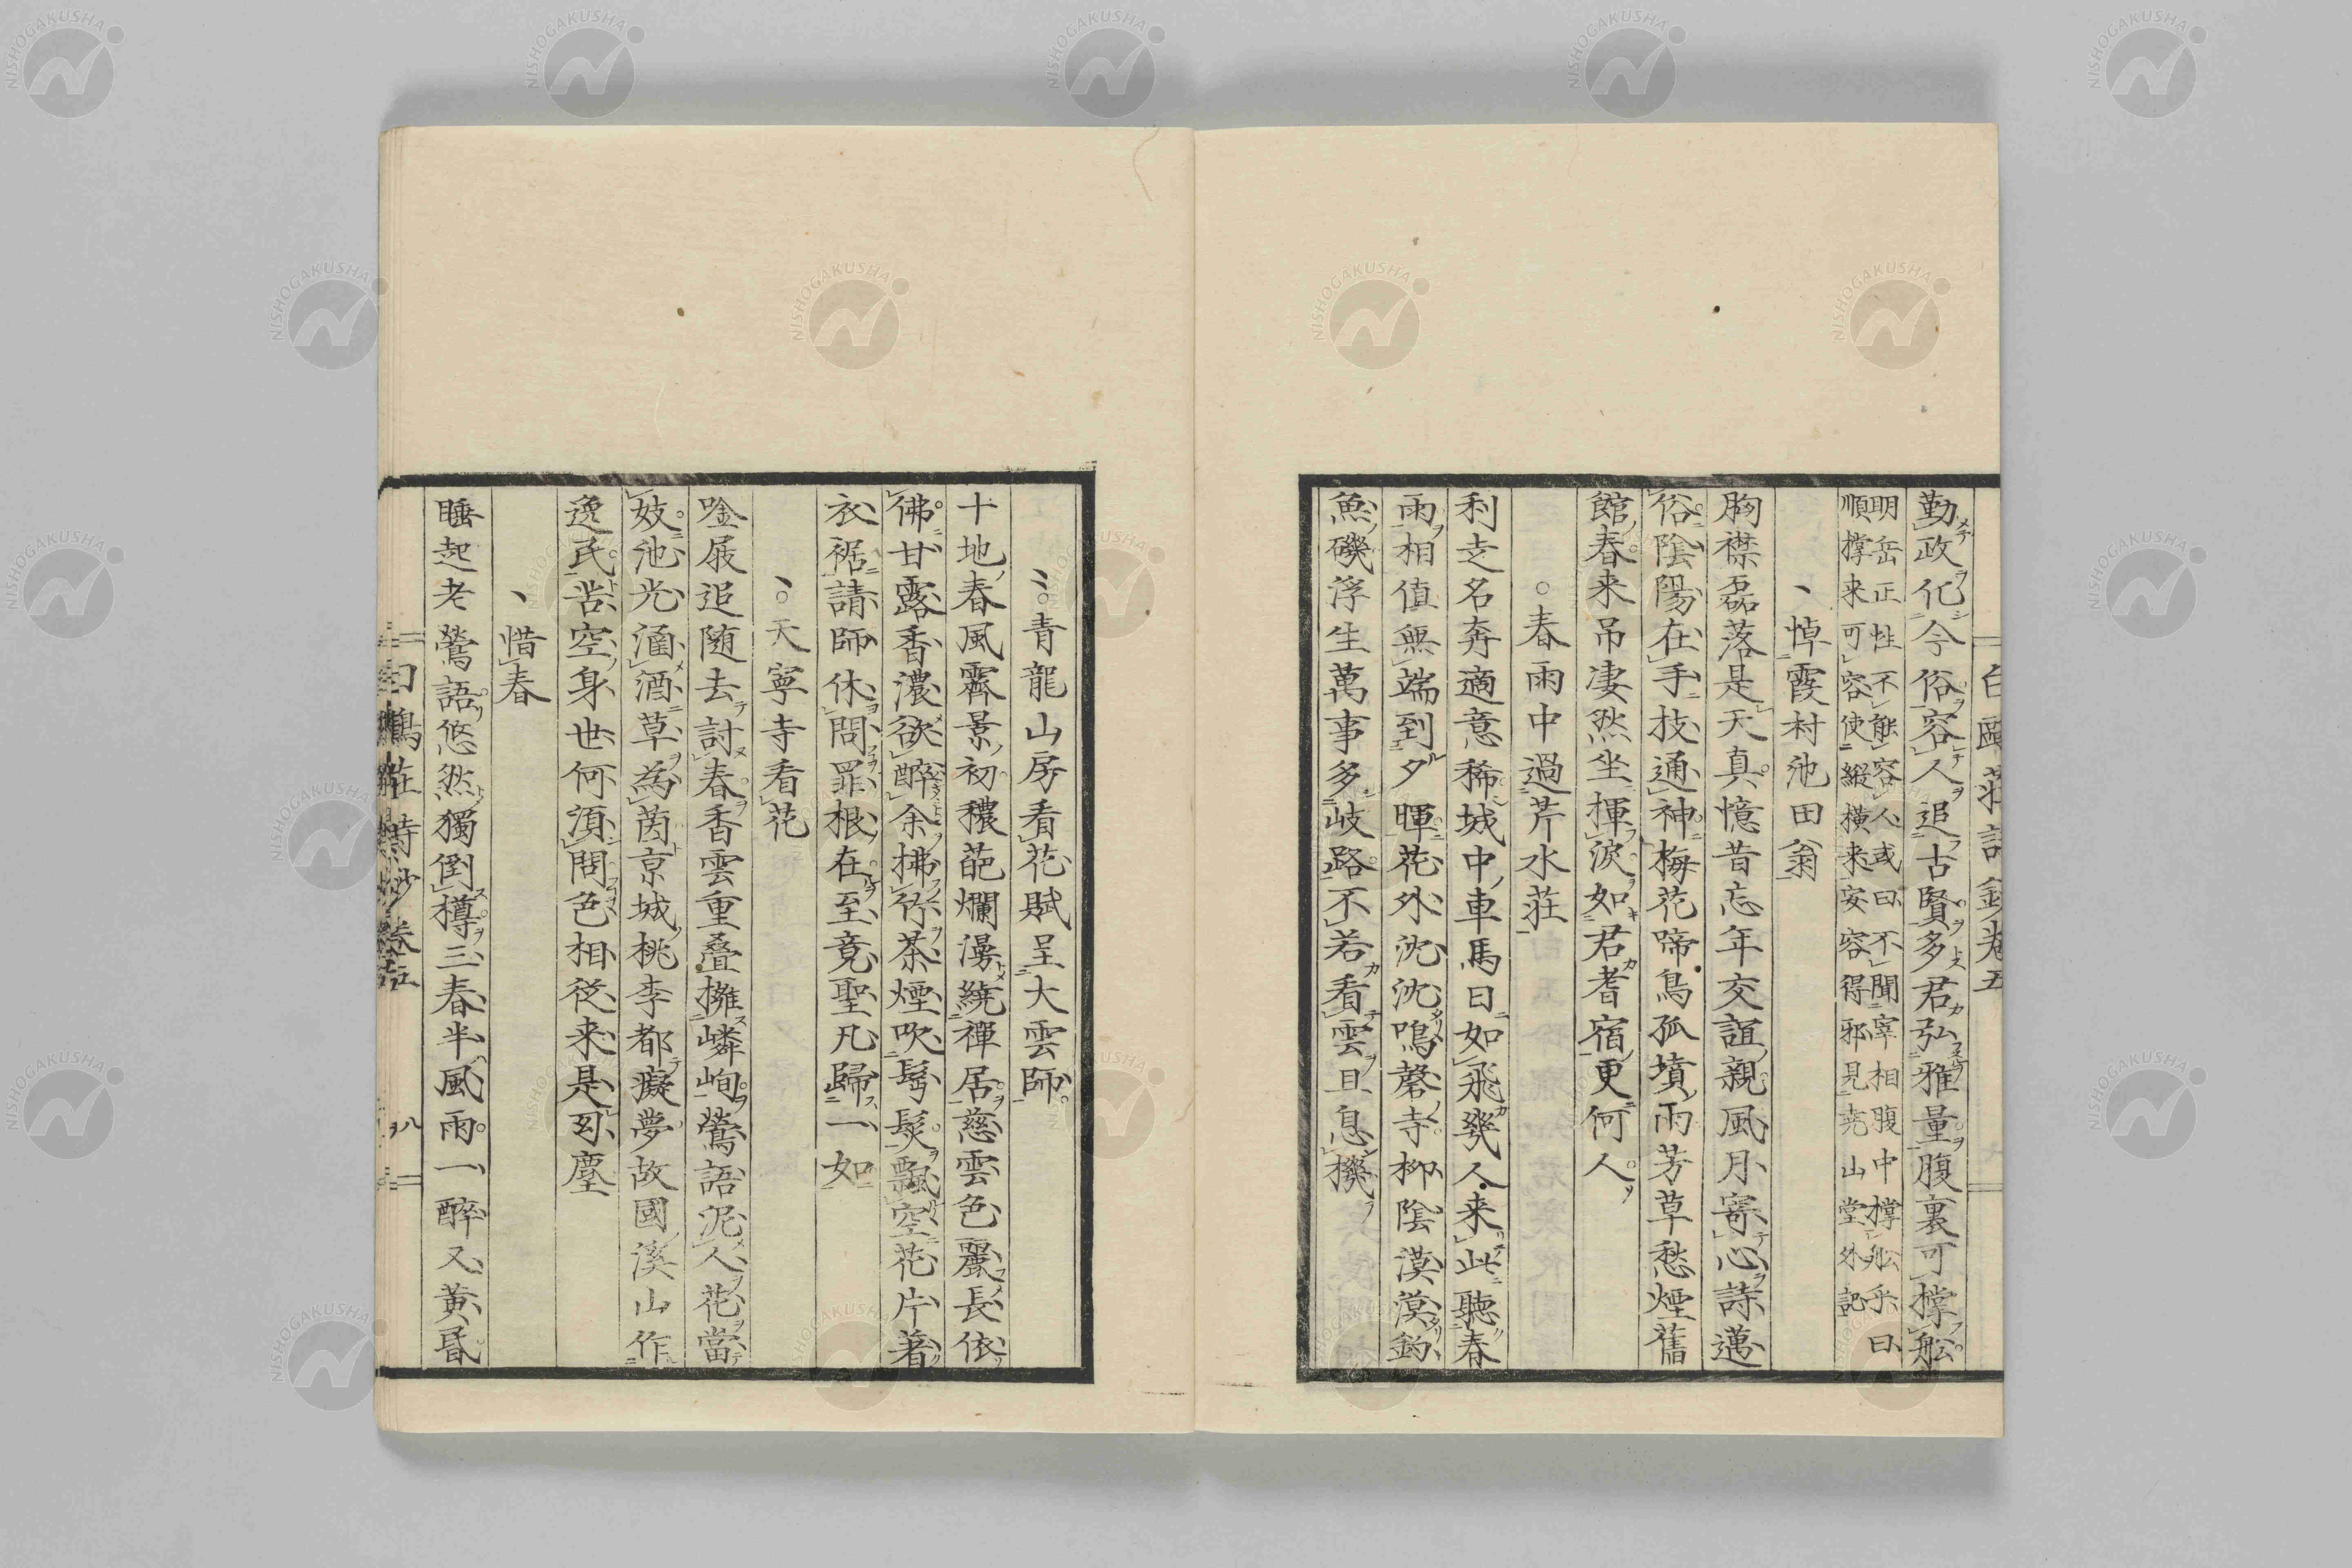 勤政化今俗容人追古賢多君弘雅量腹裏可撑船
明岳正性不能容人或曰不聞宰相腹中撑船乎曰
順撑来可容使縦横来安容得邪見尭山堂外記
悼霞村池田翁
胸襟磊落是天真憶昔忘年交誼親風月寄心詩邁
俗陰陽在手技通神梅花啼鳥孤墳雨芳草愁煙舊
館春来吊凄然坐揮涙如君耆宿更何人
春雨中過芹水荘
利走名奔適意稀城中車馬日如飛幾人来此聴春
雨相値無端到夕暉花外沈沈鳴磬寺柳陰漠漠釣
魚磯浮生萬事多岐路不若看雲且息機
青龍山房看花賦呈大雲師
十地春風霽景初穠葩爛漫繞禪居慈雲色麗長依
佛甘露香濃欲醉余拂竹茶煙吹鬢髮飄空花片著
衣裾請師休問罪根在至竟聖凡歸一如
天寧寺看花
唫屐追随去討春香雲重疊擁嶙峋鶯語泥人花當
妓池光涵酒草為茵京城桃李都癡夢故國溪山作
逸民苦空身世何須問色相從来是幻塵
惜春
睡起老鶯語悠然獨倒樽三春半風雨一醉又黃昏
詩鈔卷五
八
NISHOGAKUSHA